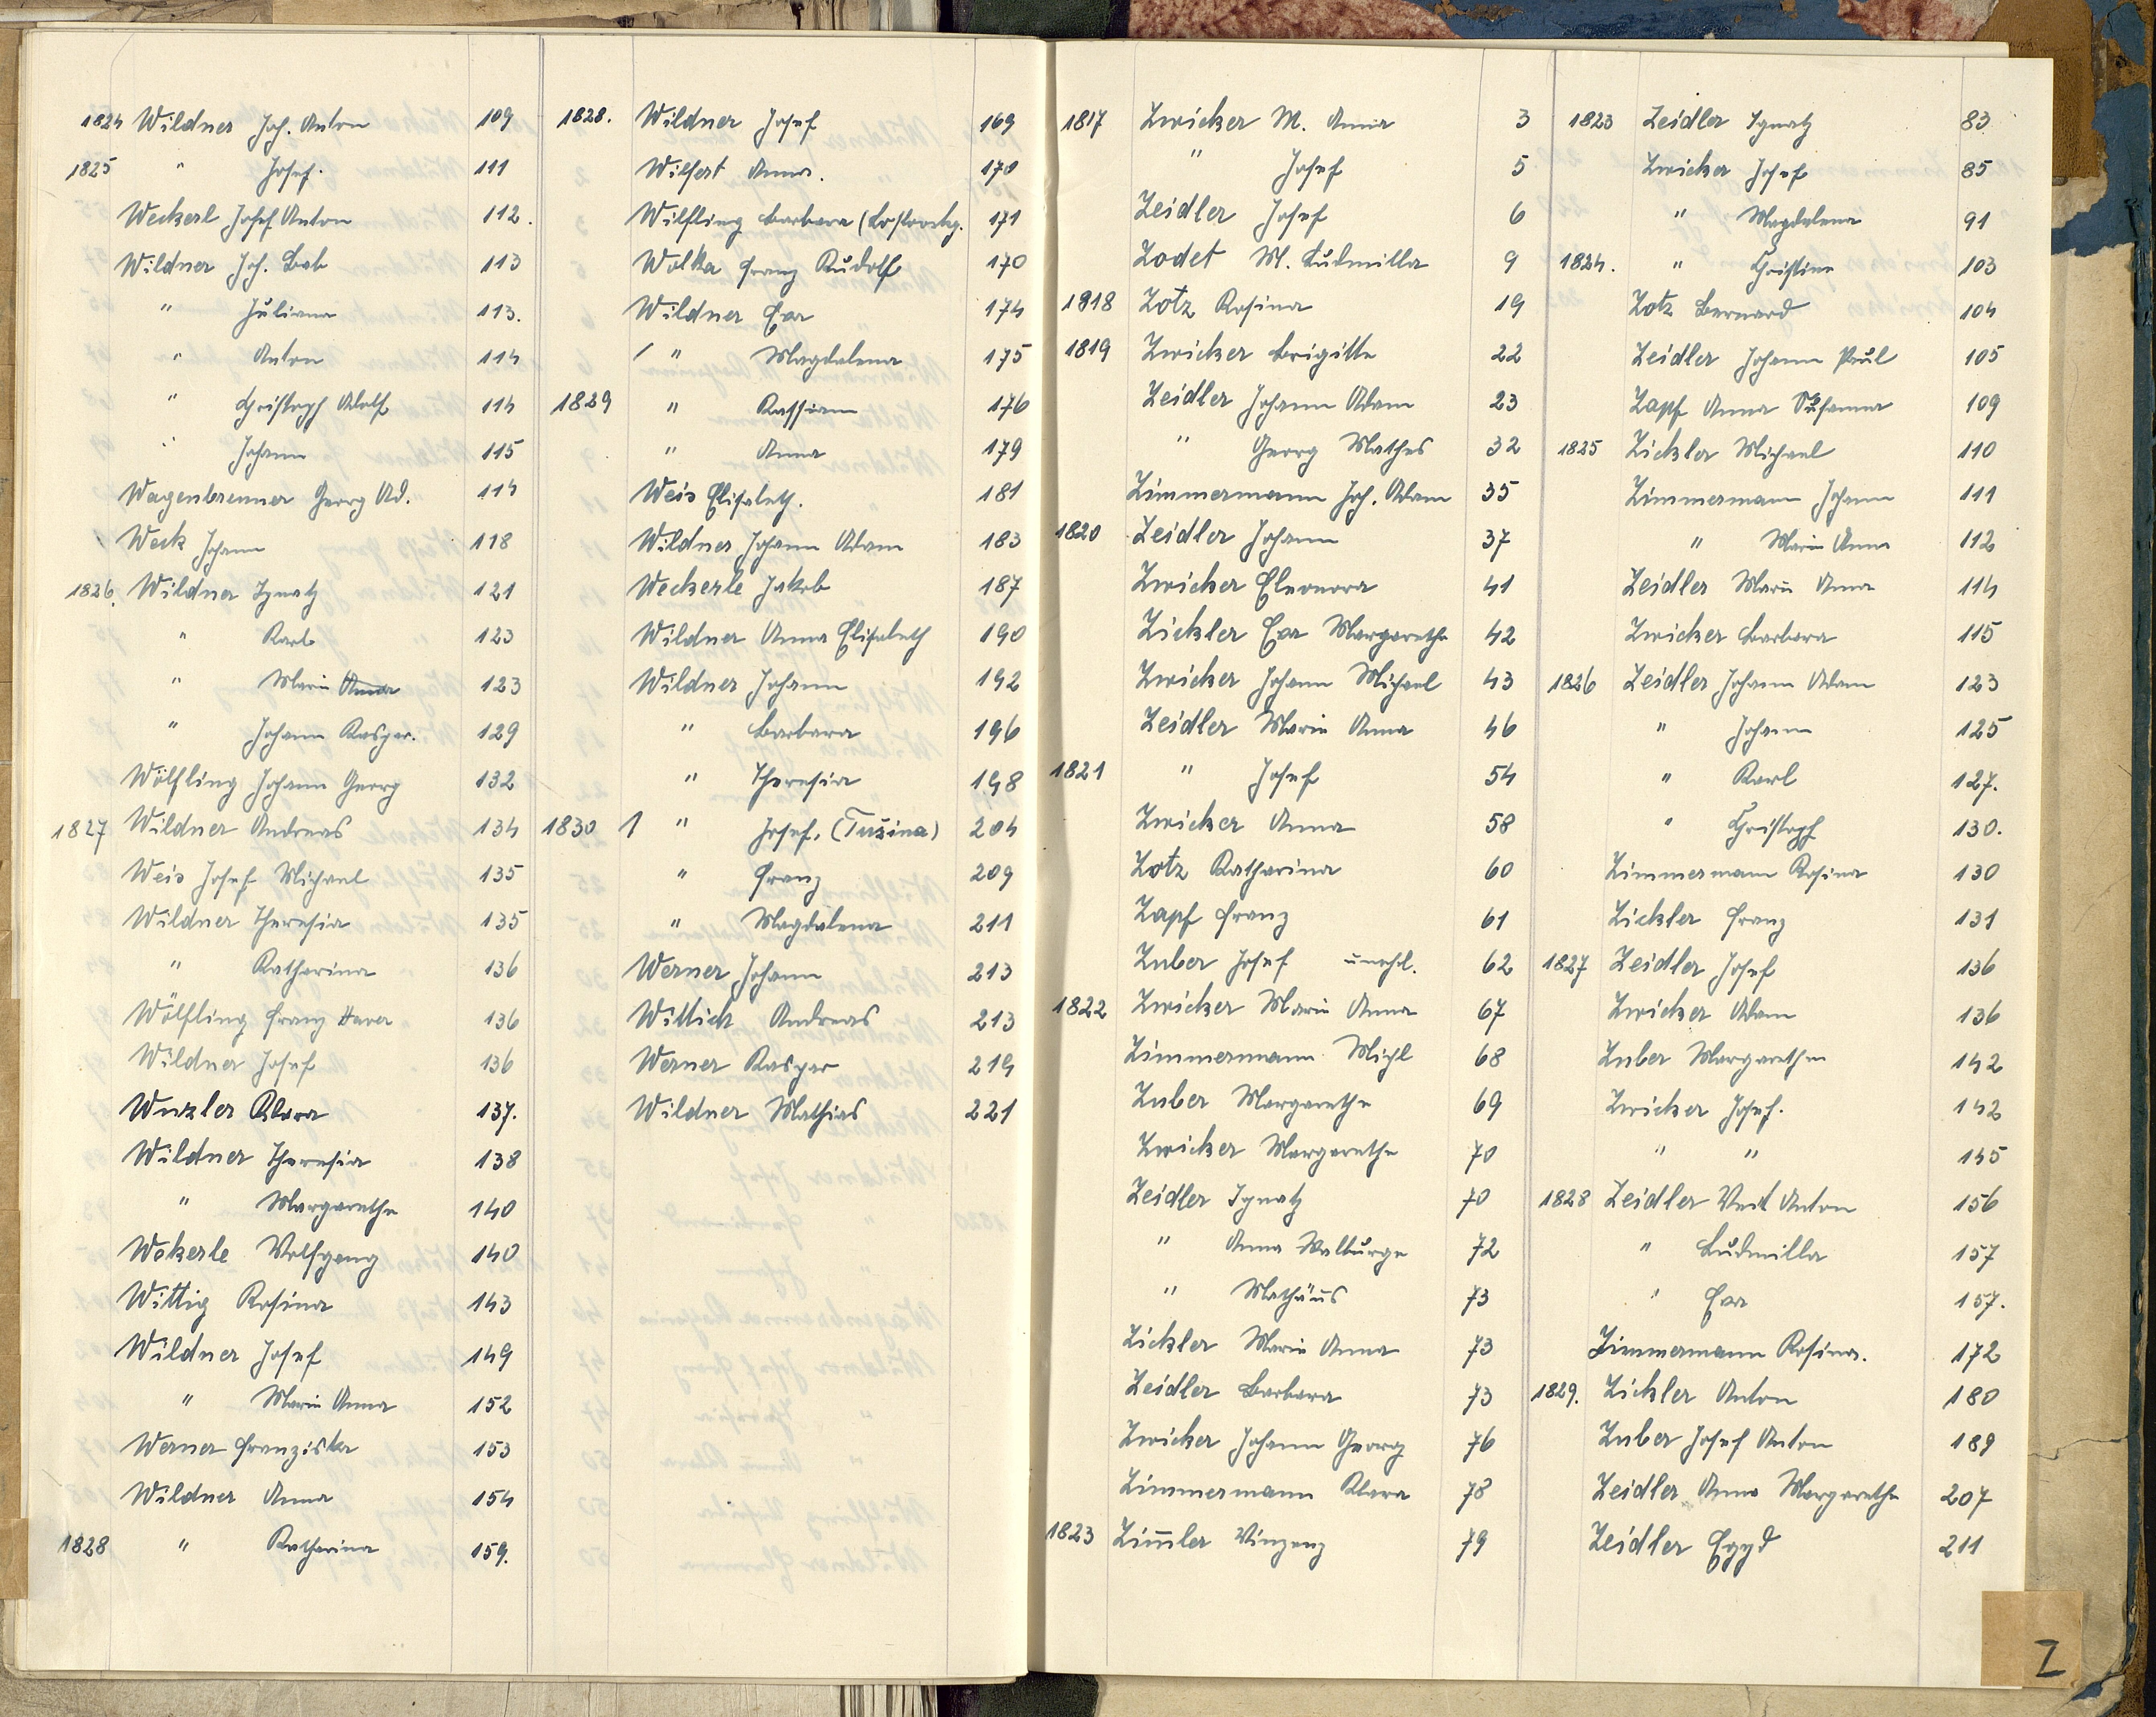 1824 Wildner Joh. Anton 109
1825 " Josef. 111
Weckerl Josef Anton 112.
Wildner Joh. Bab 113
" Juliana 113.
" Anton 114
" Christoph Adolf 114
" Johann 115
Wagenbrenner Georg Ad. 114
Weck Johann 118
1826. Wildner Ignatz 121
" Karl 123
" Maria Anna 123
" Johann Kaspar. 129
Wölfling Johann Georg 132
1827 Wildner Andreas 134
Weis Josef Michael 135
Wildner Theresia 135
" Katharina 136
Wölfling Franz Xaver 136
Wildner Josef 136
Wuzler Klara 137.
Wildner Theresia 138
" Margarethe 140
Wekerle Wolfgang 140
Wittig Rosina 143
Wildner Josef 149
" Maria Anna 152
Werner Franziska 153
Wildner Anna 154
1828 " Katharina 159.
1828. Wildner Josef 169
Wilfert Anna. 170
Wilfling Barbara 171
Wolka Franz Rudolf 170
Wildner Eva 174
/ " Magdalena 175
1829 " Kassian 176
" Anna 179
Weis Elisabeth. 181
Wildner Johann Adam 183
Weckerle Jakob 187
Wildner Anna Elisabeth 190
Wildner Johann 192
" Barbara 196
" Theresia 198
1830 / " Josef, (Tušina) 204
" Franz 209
" Magdalena 211
Werner Johann 213
Wittich Andreas 213
Werner Kaspar 219
Wildner Mathias 221
1817 Zwicker M. Anna 3
" Josef 5
Zeidler Josef 6
Zodet M. Ludmilla 9
1818 Zotz Rosina 19
1819 Zwicker Brigitte 22
Zeidler Johann Adam 23
" Georg Mathes 32
Zimmermann Joh. Adam 35
1820 Zeidler Johann 37
Zwicker Eleonora 41
Zickler Eva Margarethe 42
Zwicker Johann Michael 43
Zeidler Maria Anna 46
1821 " Josef 54
Zwicker Anna 58
Zotz Katharina 60
Zapf Franz 61
Zuber Josef unehel. 62
1822 Zwicker Maria Anna 67
Zimmermann Michl 68
Zuber Margarethe 69
Zwicker Margarethe 70
Zeidler Ignatz 70
" Anna Walburga 72
" Mathäus 73
Zickler Maria Anna 73
Zeidler Barbara 73
Zwicker Johann Georg 76
Zimmermann Klara 78
1823 Zim̄ler Vinzenz 79
1823 Zeidler Ignatz 83
Zwicker Josef 85
" Magdalena 91
1824. " Christine 103
Zotz Bernard 104
Zeidler Johann Paul 105
Zapf Anna Susanna 109
1825 Zickler Michael 110
Zimmermann Johann 111
" Maria Anna 112
Zeidler Maria Anna 114
Zwicker Barbara 115
1826 Zeidler Johann Adam 123
" Johann 125
" Karl 127.
" Christoph 130.
Zimmermann Rosina 130
Zickler Franz 131
1827 Zeidler Josef 136
Zwicker Adam 136
Zuber Margarethe 142
Zwicker Josef. 142
" " 145
1828 Zeidler Veit Anton 156
" Ludmilla 157
" Eva 157.
Zimmermann Rosina. 172
1829. Zickler Anton 180
Zuber Josef Anton 189
Zeidler Anna Margarethe 207
Zeidler Egyd 211
Z